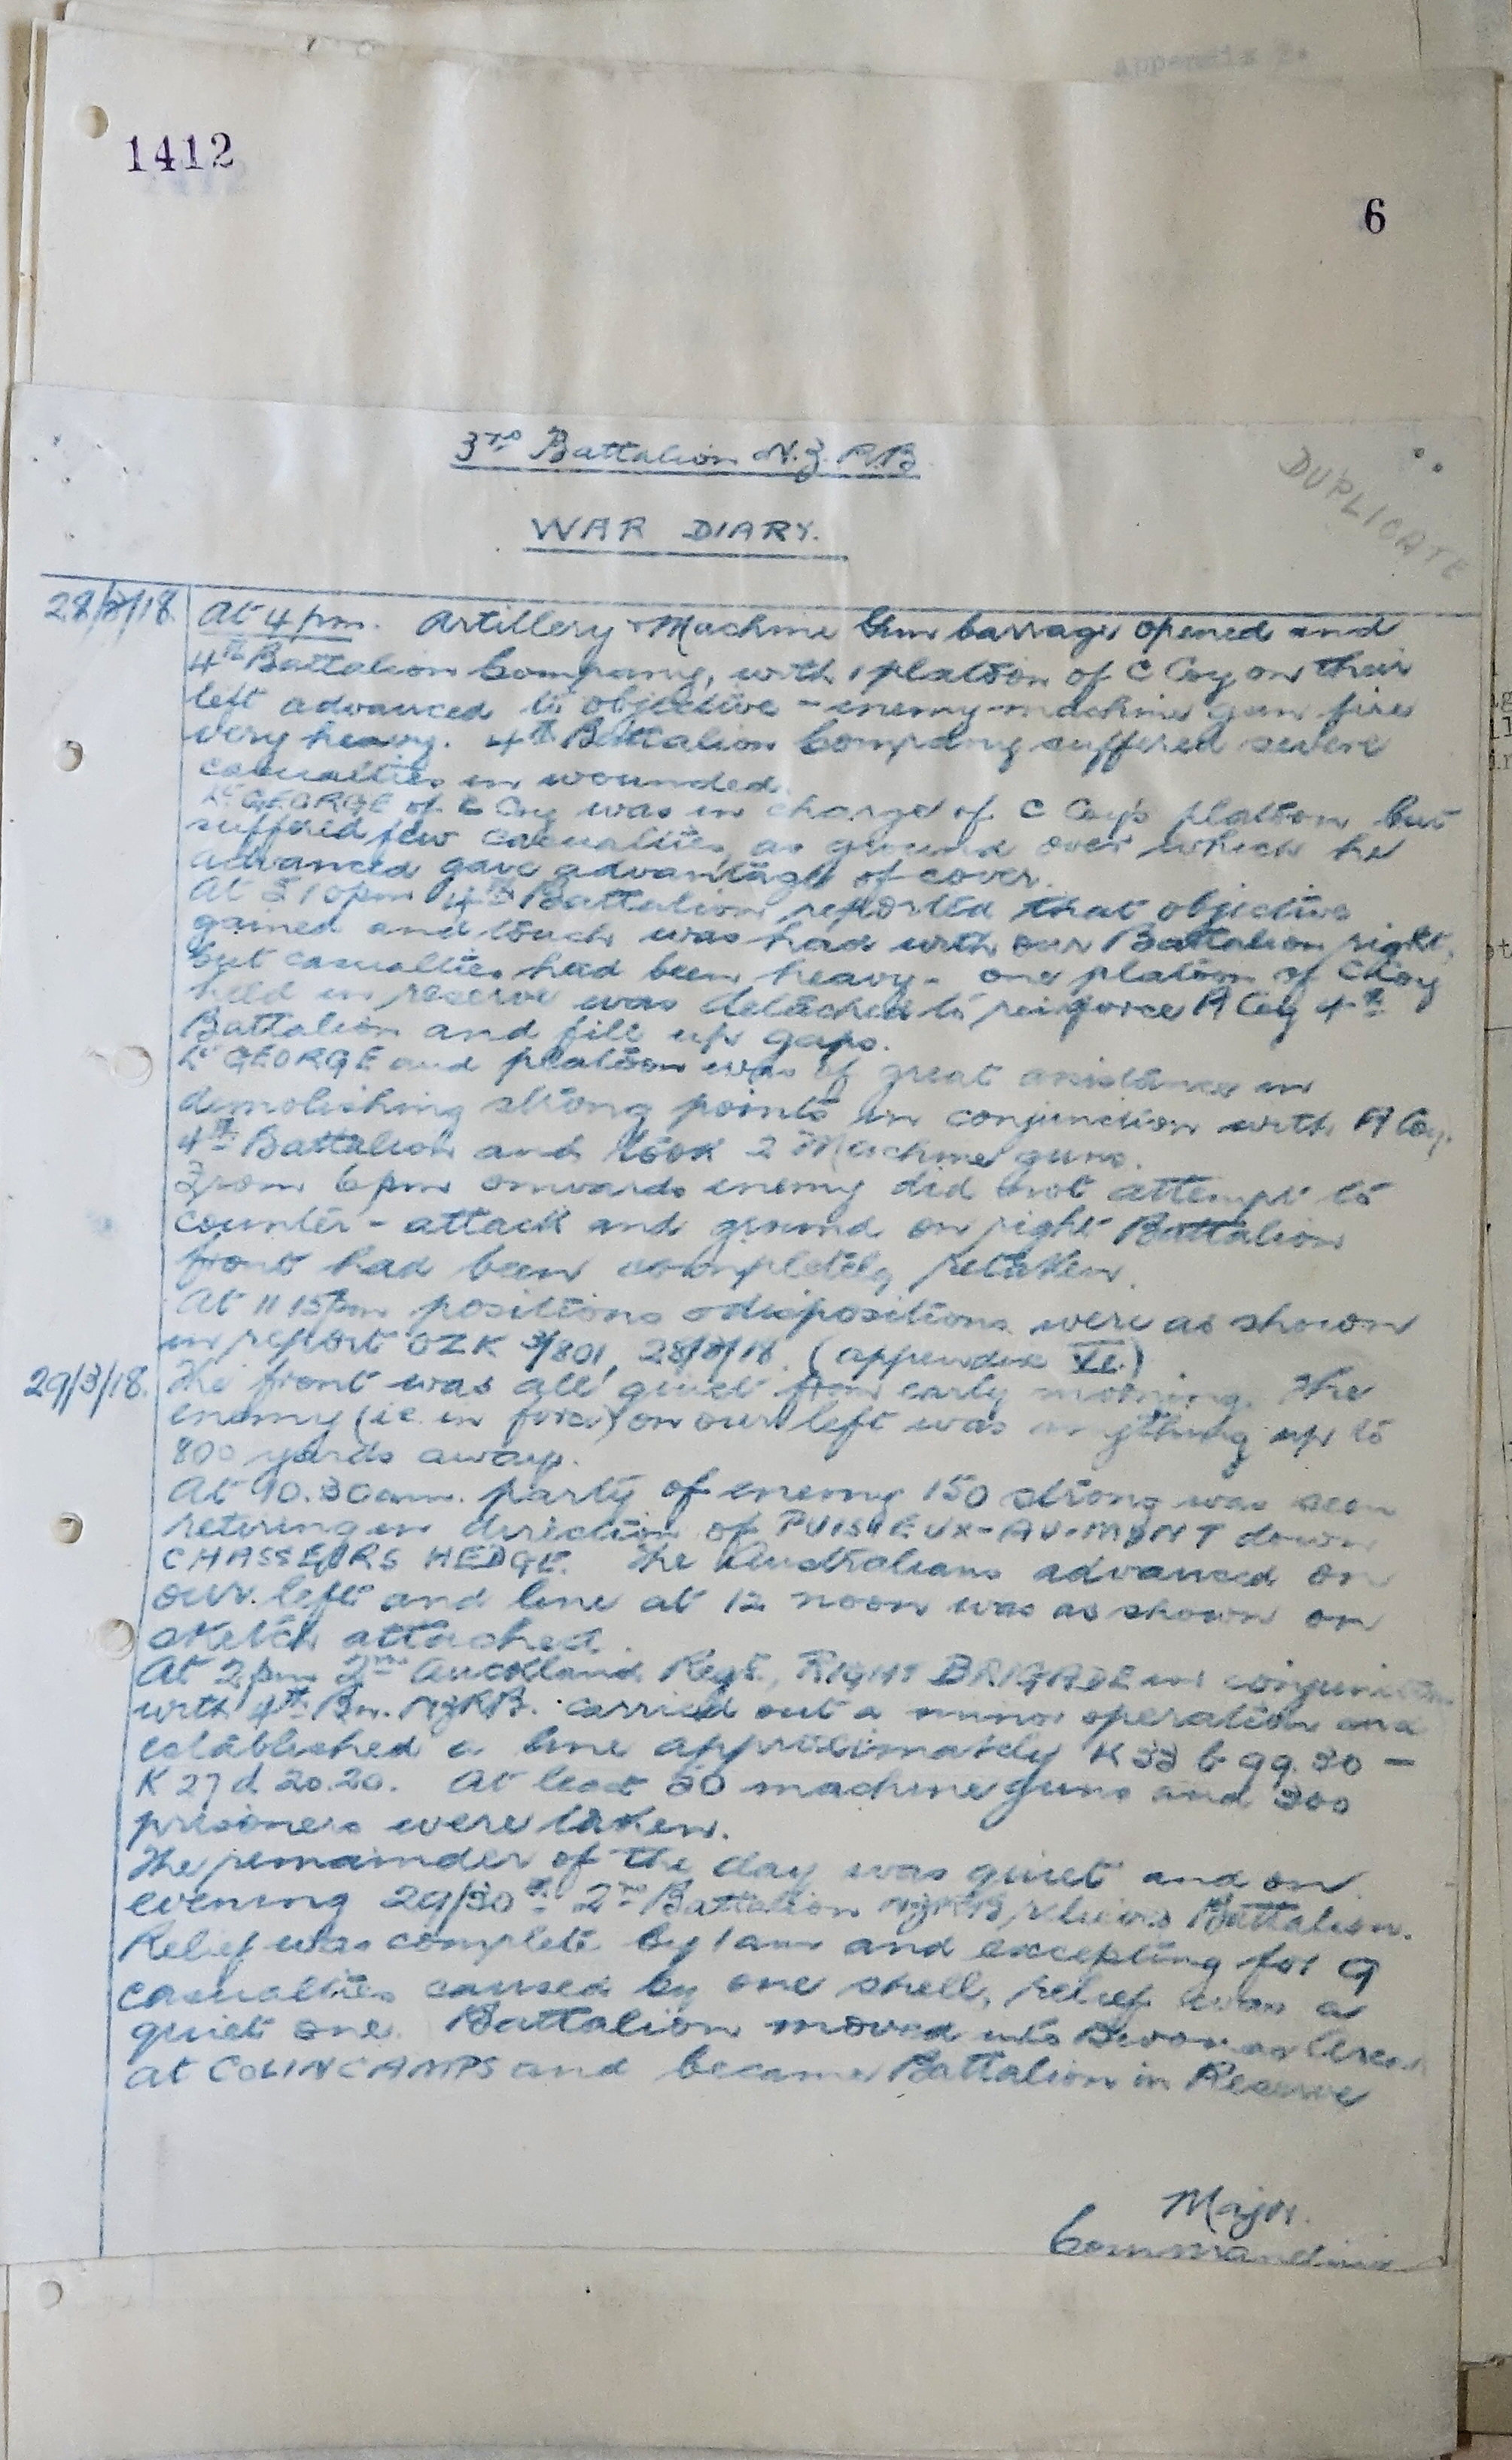 1412
6
3rd Battalion N.Z.R.B.
DUPLICATE
WAR DIARY.
28/3/18.
At 4 pm. Artillery & Machine Gun barrage opened and
4th Battalion Company, with 1 platoon of C Coy on their
left advanced to objective - enemy machine gun fire
very heavy. 4th Battalion Company suffered severe
casualties in wounded.
Lt GEORGE of C Coy was in charge of C Coy's platoon but
suffered few casualties, as ground over which he
advanced gave advantage of cover.
At 5 10 pm 4th Battalion reported that objective
gained and touch was had with our Battalion right,
but casualties had been heavy - one platoon of C Coy
held in reserve was detached to reinforce A Coy 4th
Battalion and fill up gaps.
Lt GEORGE and platoon was of great assistance in
demolishing strong points in conjunction with A Coy.
4th Battalion and took 2 Machine guns.
From 6 pm onwards enemy did not attempt to
counter-attack and ground on right Battalion
front had been completely retaken.
At 11 15 pm positions & dispositions were as shown
in report OZK 3/801, 28/3/18. (appendix VI.)
29/3/18.
The front was all quiet from early morning. The
enemy (i.e. in force) on our left was anything up to
800 yards away.
At 10.30 am. party of enemy 150 strong was seen
retiring in direction of PUISIEUX-AU-MONT down
CHASSEURS HEDGE. The Australians advanced on
our left and line at 12 noon was as shown on
sketch attached.
At 2 pm 2nd Auckland Regt., RIGHT BRIGADE in conjunction
with 4th Bn. NZRB. carried out a minor operation and
established a line approximately K 33 b 99.30 -
K 27 d 20.20. At least 30 machine guns and 300
prisoners were taken.
The remainder of the day was quiet and on
evening 29/30th 2nd Battalion NZRB relieved Battalion.
Relief was complete by 1 am and excepting for 9
casualties caused by one shell, relief was a
quiet one. Battalion moved into Area
at COLINCAMPS and became Battalion in Reserve
Major.
Commanding